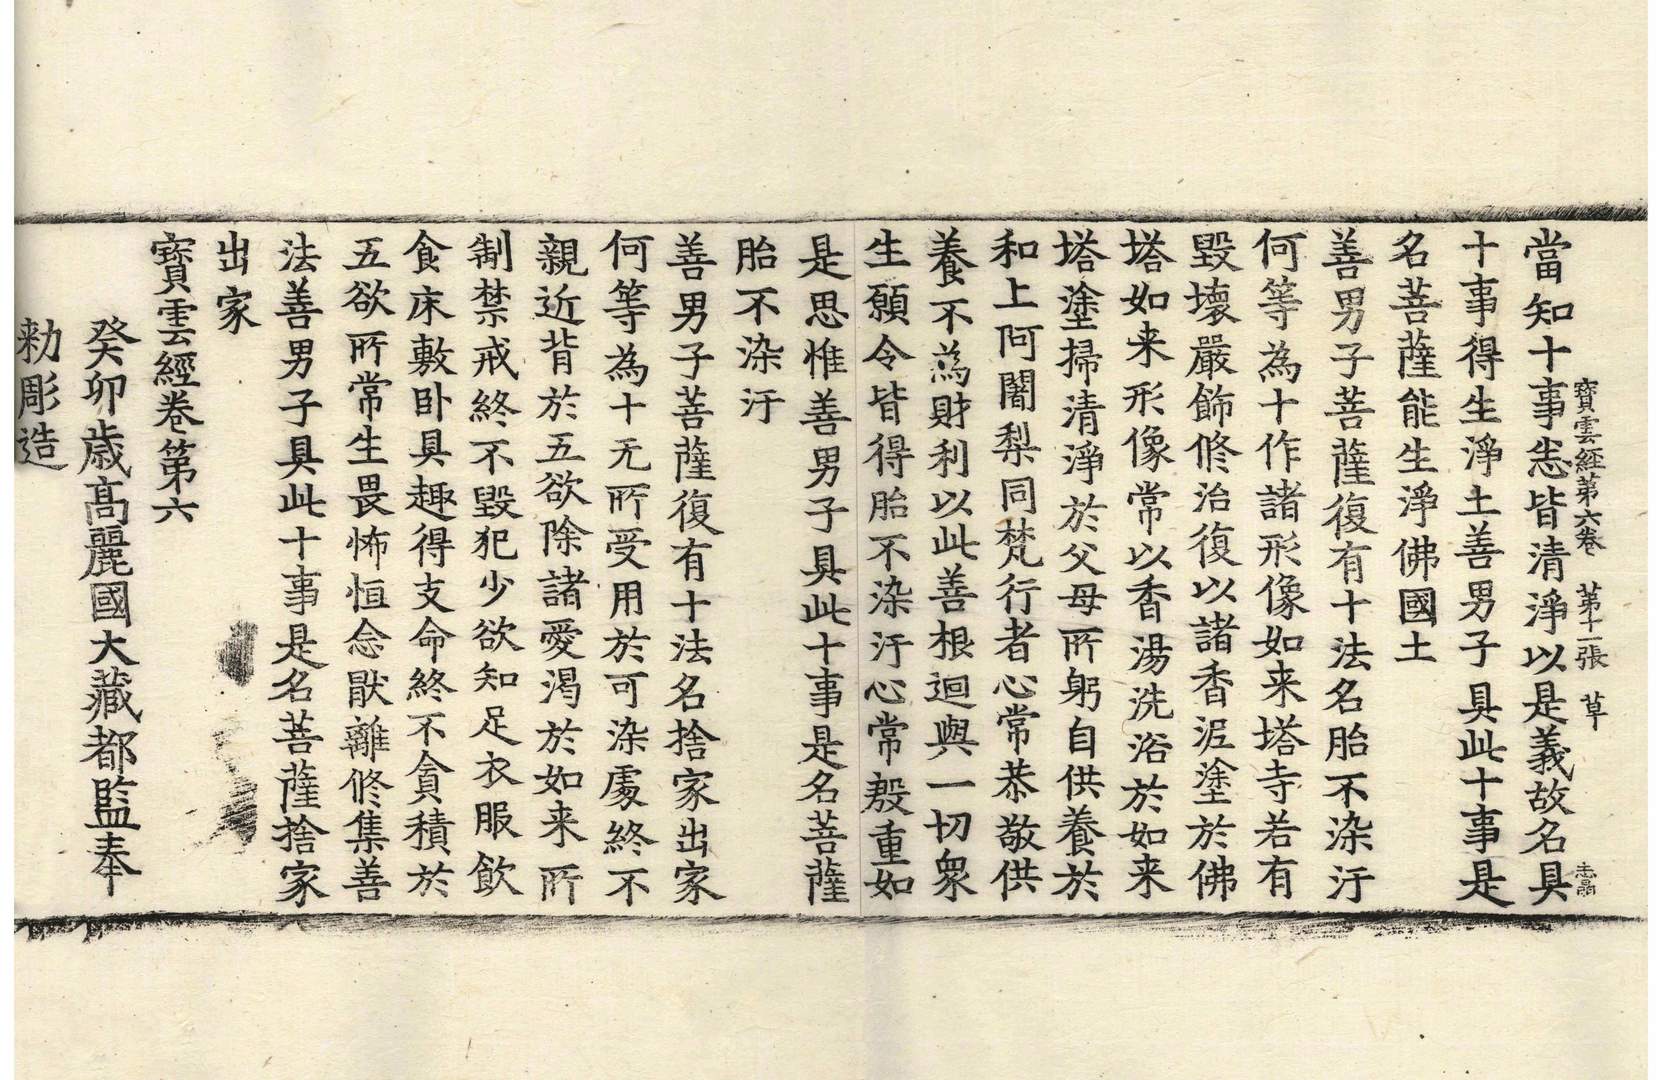 寶雲経第六卷　第十一張　草
當知十事悉皆清淨以是義故名具
十事得生淨土善男子具此十事是
名菩薩能生淨佛國土
善男子菩薩復有十法名胎不染汙
何等為十作諸形像如来塔寺若有
毀壞嚴飾修治復以諸香泥塗於佛
塔如来形像常以香湯洗浴於如来
塔塗掃清淨於父母所躬自供養於
和上阿闍梨同梵行者心常恭敬供
養不為財利以此善根迴與一切衆
生願令皆得胎不染汙心常殷重如
是思惟善男子具此十事是名菩薩
胎不染汙
善男子菩薩復有十法名捨家出家
何等為十无所受用於可染處終不
親近背於五欲除諸愛渴於如来所
制禁戒終不毀犯少欲知足衣服飲
食床敷卧具趣得支命終不貪積於
五欲所常生畏怖恒念猒離修集善
法善男子具此十事是名菩薩捨家
出家
寶雲經卷第六
癸卯歲高麗國大藏都監奉
勑彫造